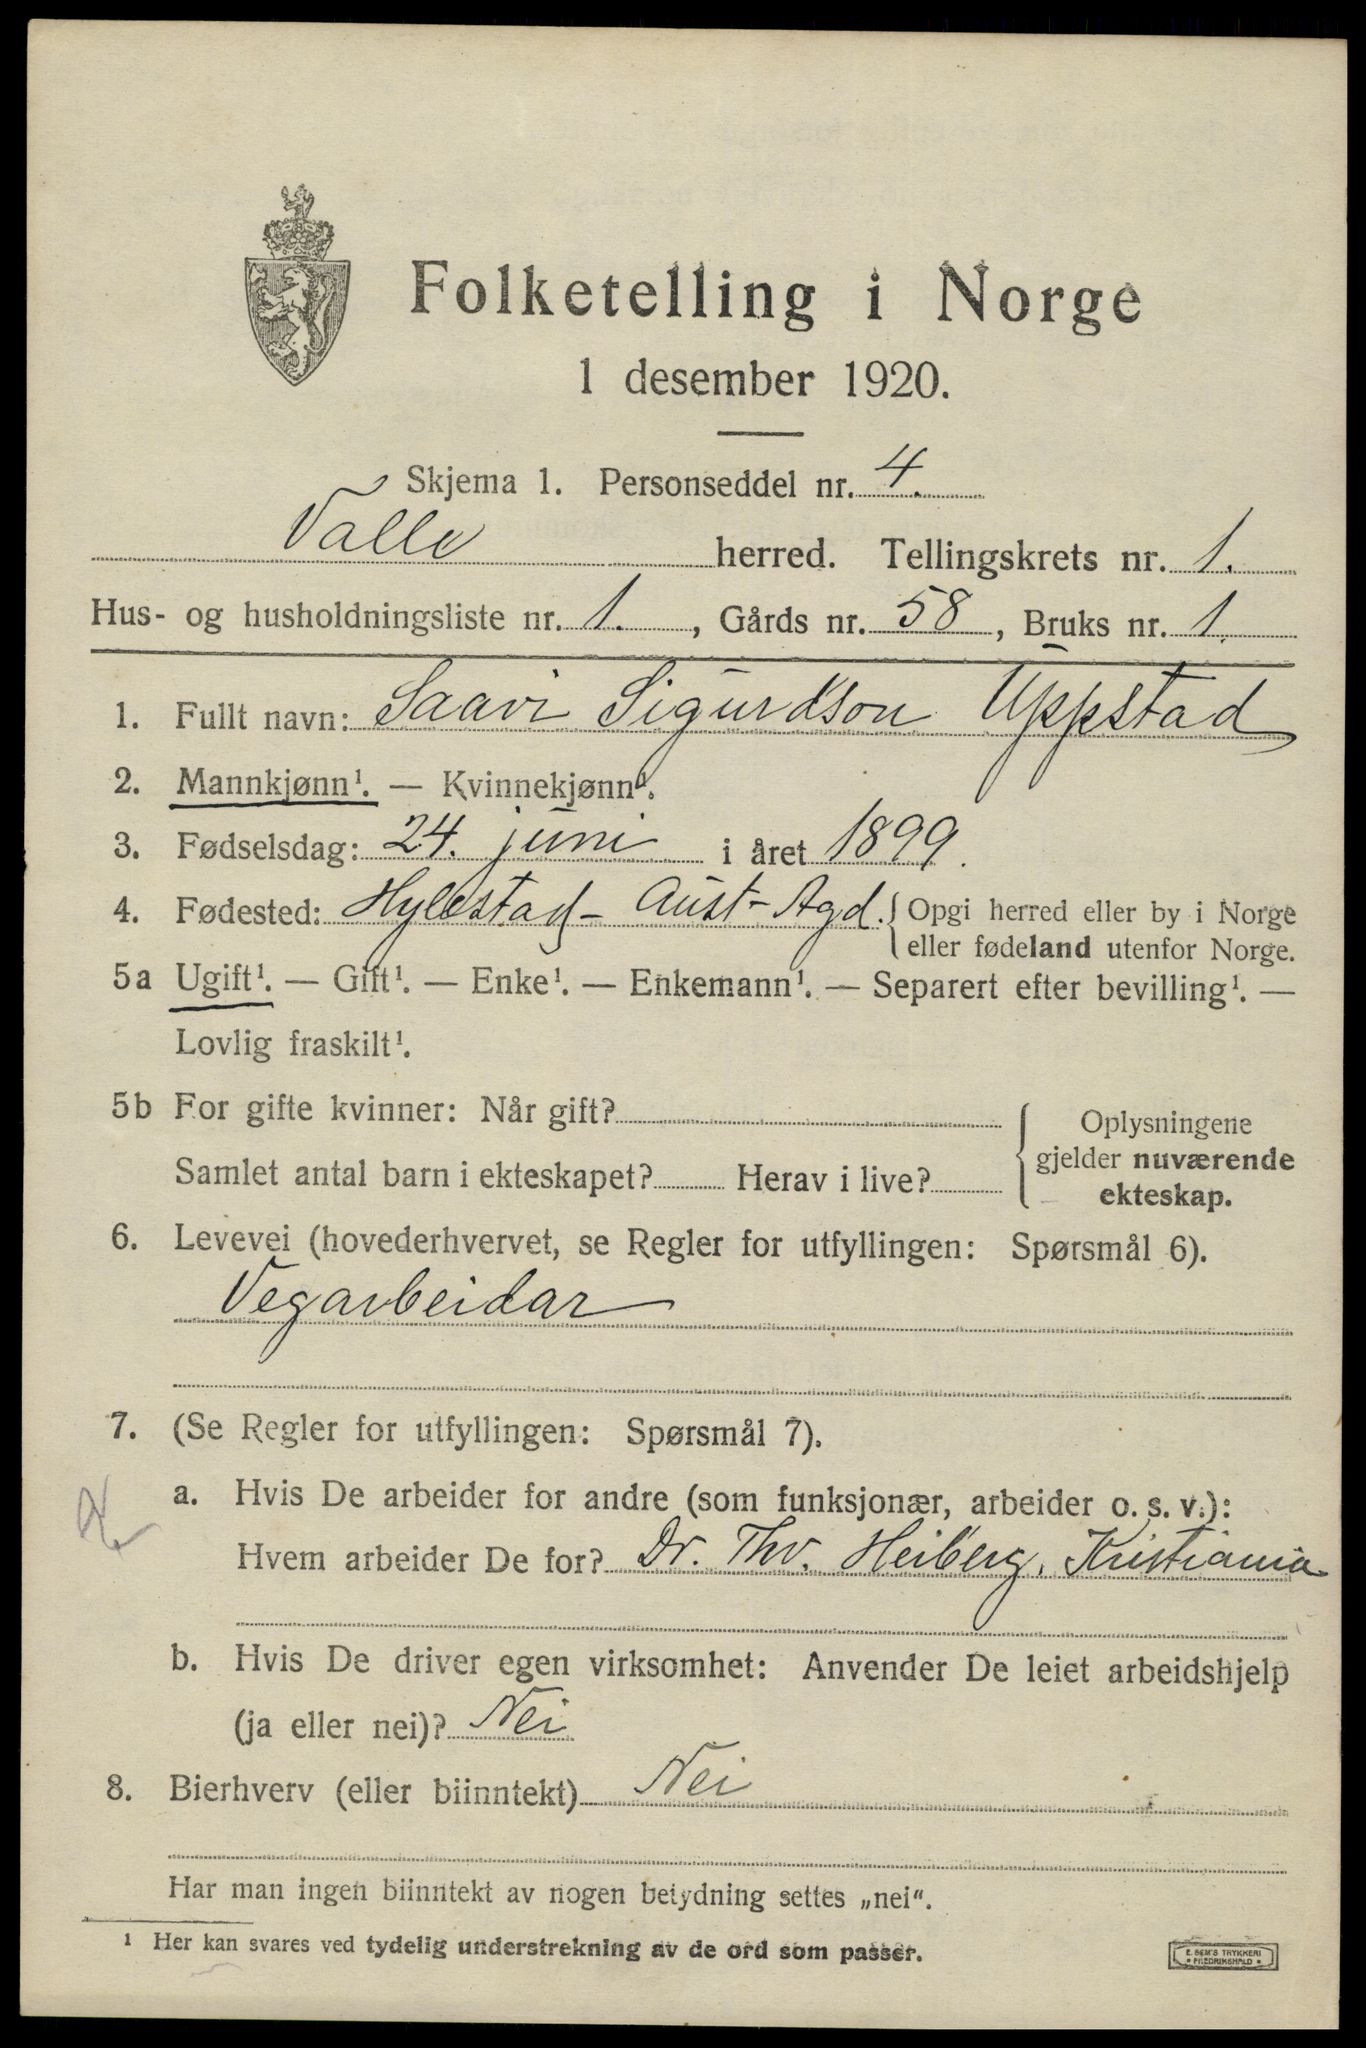 Folketelling i Norge
1 desember 1920.
Skjema 1. Personseddel nr. 4.
Valle herred. Tellingskrets nr. 1.
Hus- og husholdningsliste nr. 1. , Gårds nr. 58 , Bruks nr. 1.
1. Fullt navn: Saavi Sigurdson Uppstad
2. Mannkjønn¹. — Kvinnekjønn¹.
3. Fødselsdag: 24. juni i året 1899.
4. Fødested: Hylestad - Aust-Agd. { Opgi herred eller by i Norge
eller fødeland utenfor Norge.
5a Ugift¹. — Gift¹. — Enke¹. — Enkemann¹. — Separert efter bevilling¹. —
Lovlig fraskilt¹.
5b For gifte kvinner: Når gift?
Samlet antal barn i ekteskapet? Herav i live?
Oplysningene
gjelder nuværende
ekteskap.
6. Levevei (hovederhvervet, se Regler for utfyllingen: Spørsmål 6).
Vegarbeidar
7. (Se Regler for utfyllingen: Spørsmål 7).
a. Hvis De arbeider for andre (som funksjonær, arbeider o. s. v.):
Hvem arbeider De for? Dr. Thv. Heiberg, Kristiania
b. Hvis De driver egen virksomhet: Anvender De leiet arbeidshjelp
(ja eller nei)? Nei
8. Bierhverv (eller biinntekt) Nei
Har man ingen biinntekt av nogen betydning settes „nei".
¹ Her kan svares ved tydelig understrekning av de ord som passer.
E. SEM'S TRYKKERI
FREDRIKSHALD